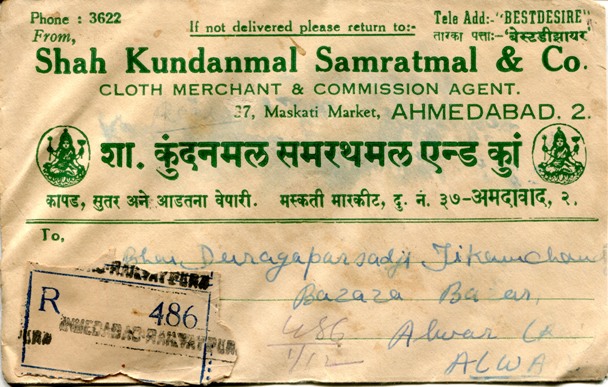 Phone : 3622
If not delivered please return to:-
Tele Add:-"BESTDESIRE"
From,
तारका पत्ताः-'बेस्टडीझायर'
Shah Kundanmal Samratmal & Co.
CLOTH MERCHANT & COMMISSION AGENT.
37, Maskati Market, AHMEDABAD. 2.
शा. कुंदनमल समरथमल एन्ड कुां
कापड, सुतर अने आडतना वेपारी. मस्कती मारकीट, दु. नं. ३७-अमदावाद, २.
To,
Bhai Duragaparsadji Tikamchand
R 486
Bazaza Bazar,
AHMEDABAD-RAKHATPURA
486 Alwar
1/12 ALWA